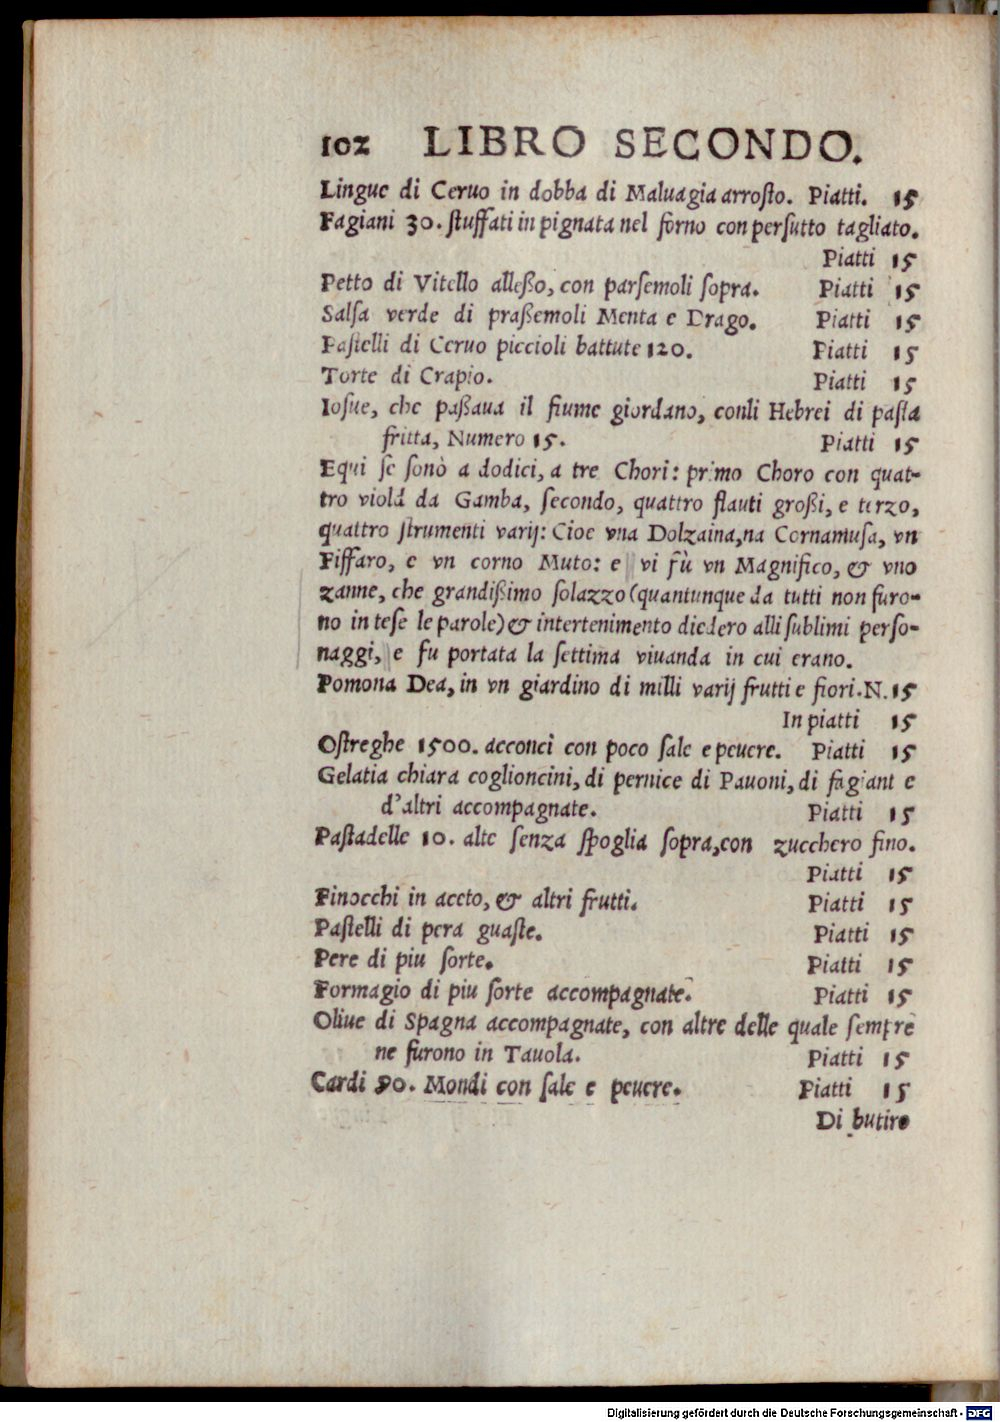 102 LIBRO SECONDO.
Lingue di Ceruo in dobba di Maluagia arrosto. Piatti. 15
Fagiani 30. stuffati in pignata nel forno con persutto tagliato.
Piatti 15
Petto di Vitello allesso, con parsemoli sopra. Piatti 15
Salsa verde di prassemoli Menta e Drago. Piatti 15
Pastelli di Ceruo piccioli battute 120. Piatti 15
Torte di Crapio. Piatti 15
Iosue, che passaua il fiume giordano, conli Hebrei di pasta
fritta, Numero 15. Piatti 15
Equi se sonò a dodici, a tre Chori: primo Choro con quat-
tro viola da Gamba, secondo, quattro flauti grossi, e terzo,
quattro strumenti varij: Cioe vna Dolzaina, na Cornamusa, vn
Piffaro, e vn corno Muto: e vi fù vn Magnifico, & vno
zanne, che grandissimo solazzo (quantunque da tutti non furo-
no intese le parole) & intertenimento diedero alli sublimi perso-
naggi, e fu portata la settima viuanda in cui erano.
Pomona Dea, in vn giardino di milli varij frutti e fiori. N. 15
In piatti 15
Ostreghe 1500. acconci con poco sale e peuere. Piatti 15
Gelatia chiara coglioncini, di pernice di Pauoni, di fagiani e
d'altri accompagnate. Piatti 15
Pastadelle 10. alte senza spoglia sopra, con zucchero fino.
Piatti 15
Finocchi in aceto, & altri frutti. Piatti 15
Pastelli di pera guaste. Piatti 15
Pere di piu sorte. Piatti 15
Formagio di piu sorte accompagnate. Piatti 15
Oliue di Spagna accompagnate, con altre delle quale sempre
ne furono in Tauola. Piatti 15
Cardi 50. Mondi con sale e peuere. Piatti 15
Di butiro
Digitalisierung gefördert durch die Deutsche Forschungsgemeinschaft - DFG